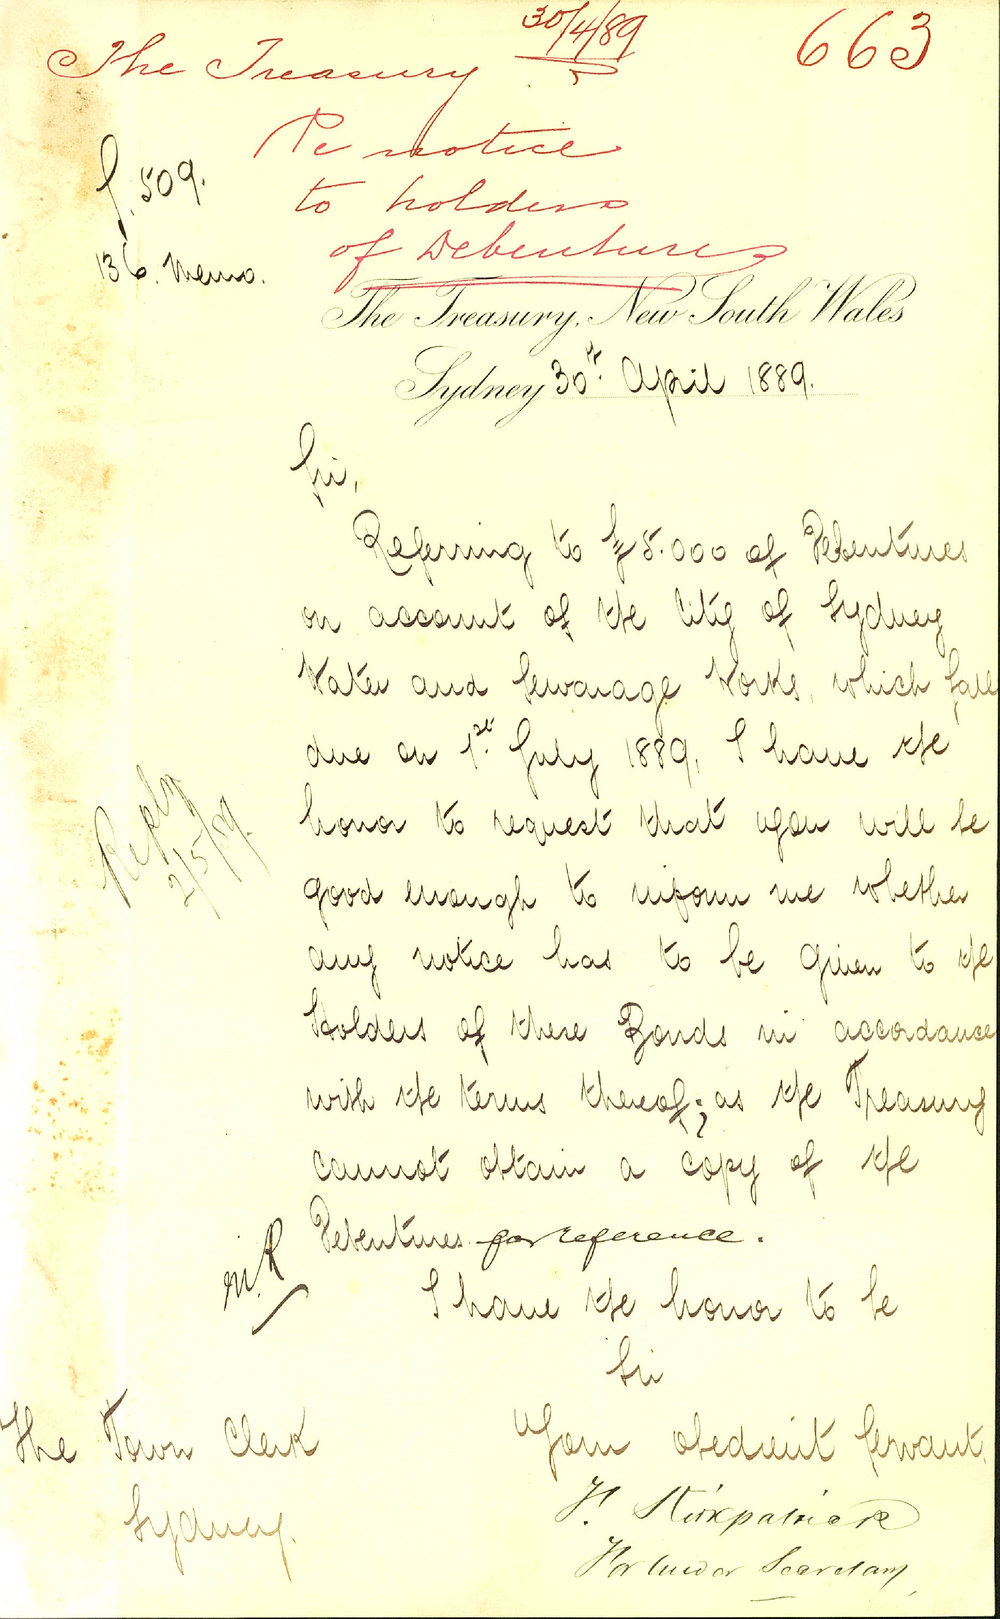 30/4/89
663
The Treasury
Re notice
to holders
of Debentures
f. 509.
136. Memo.
The Treasury, New South Wales
Sydney 30th April 1889.
Sir,
Referring to £5.000 of Debentures
on account of the City of Sydney
Water and Sewarage Works, which fall
due on 1st. July 1889, I have the
honor to request that you will be
good enough to inform me whether
any notice has to be given to the
Holders of these Bonds in accordance
with the terms thereof; as the Treasury
cannot obtain a copy of the
Debentures for reference.
Reply
2/5/89.
I have the honor to be
Sir
Your obedient Servant,
Kirkpatrick
For Under Secretary
The Town Clerk
Sydney.